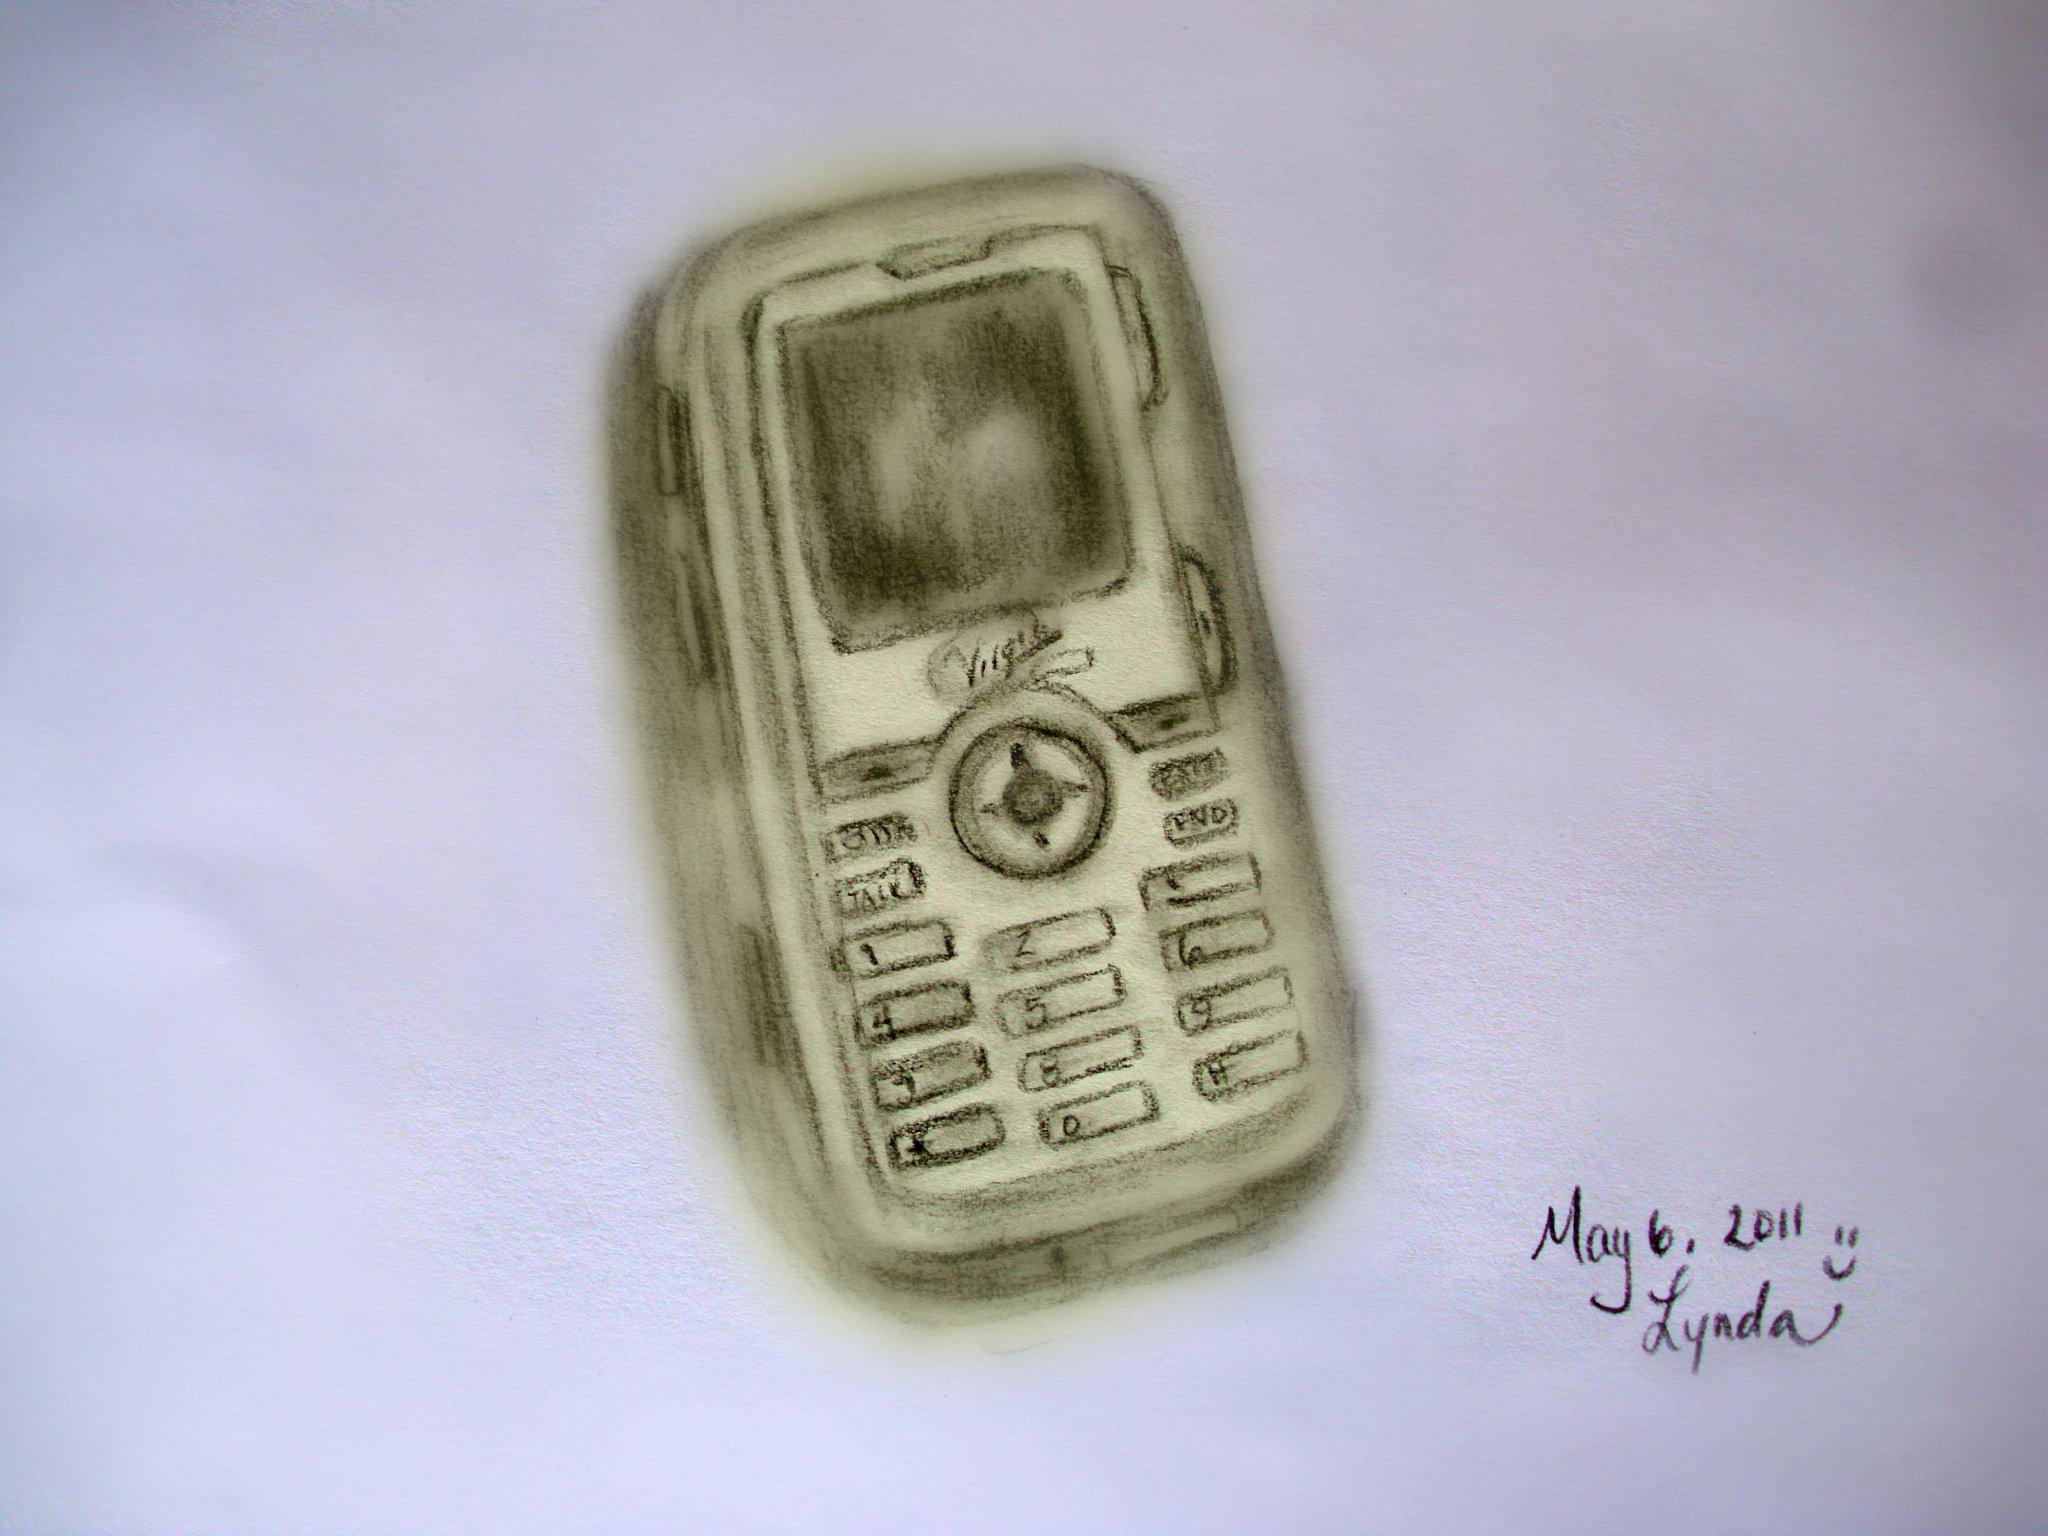 Virgin
TALK
END
1
2
4
5
6
3
8
9
*
0
#
May 6. 2011
Lynda